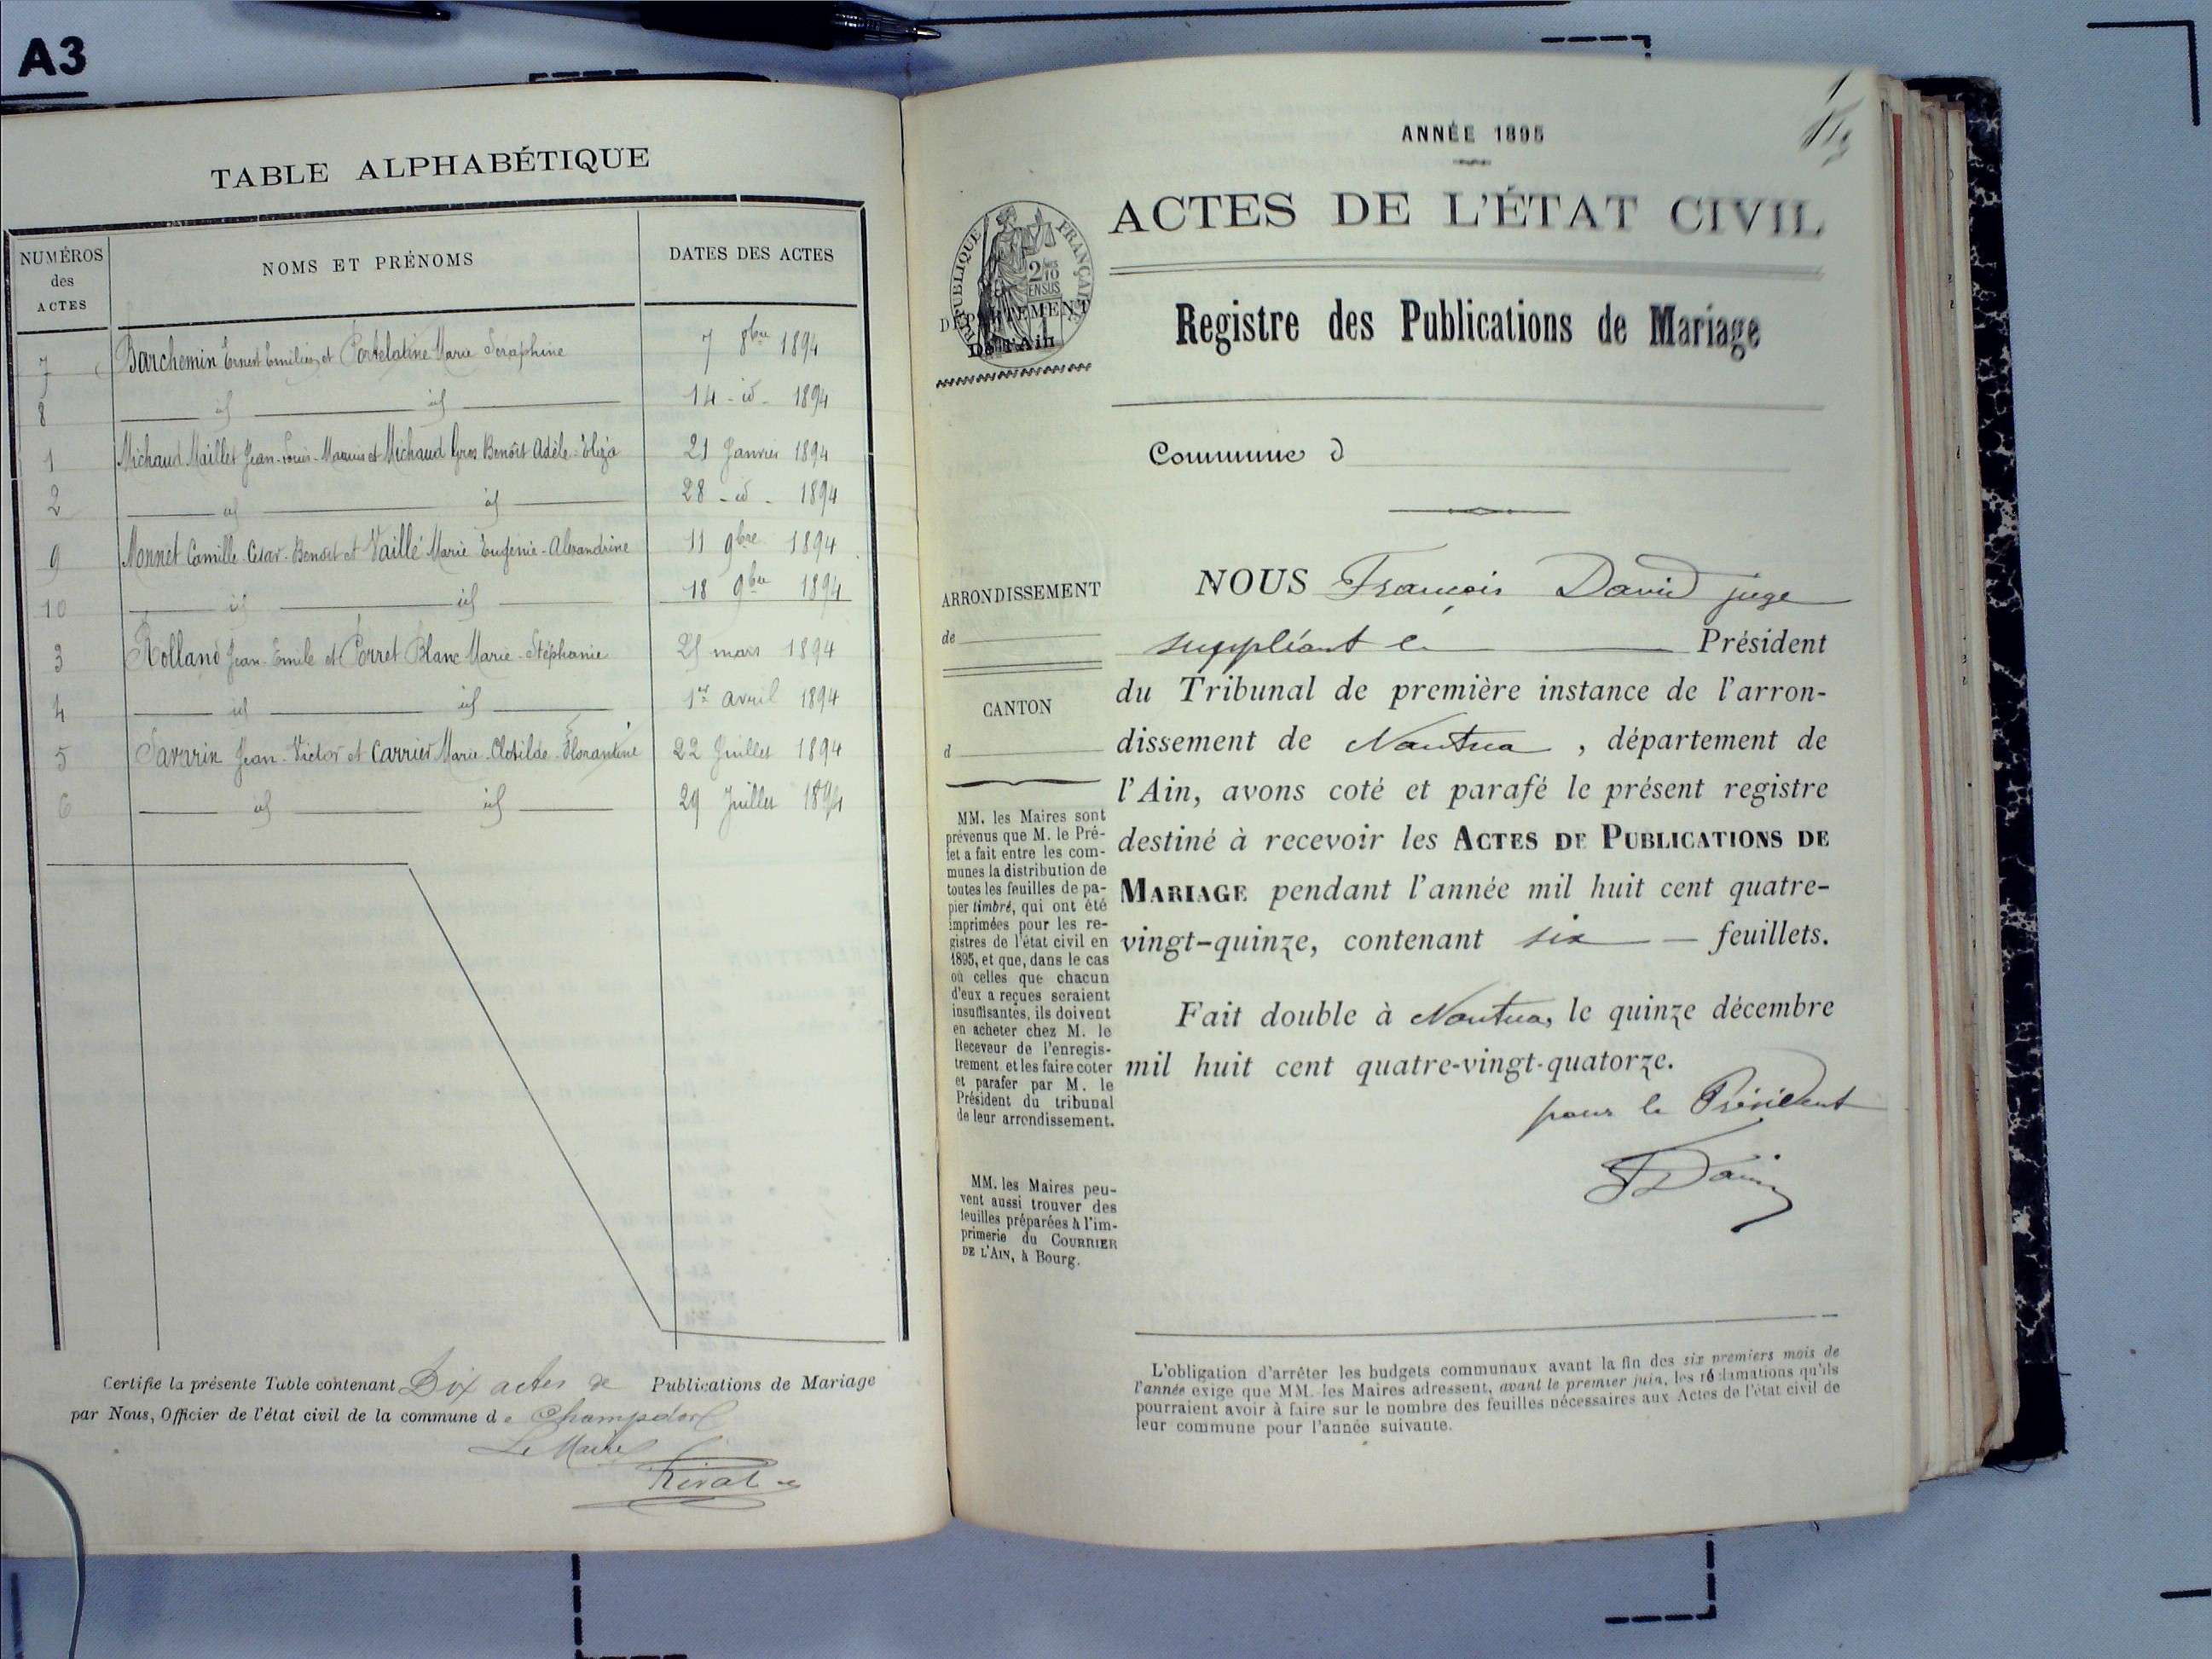 A3
TABLE ALPHABÉTIQUE
NUMÉROS des ACTES
NOMS ET PRÉNOMS
DATES DES ACTES
7 Barchemin Ernest Emilien et Portelatine Marie Séraphine 7 8bre 1894
8 id id 14 - id - 1894
1 Michaud Maillet Jean-Louis-Marius et Michaud Gros Benoît Adèle-Eliza 21 Janvier 1894
2 id id 28 - id - 1894
9 Monnet Camille-César-Benoit et Vaillé Marie Eugénie-Alexandrine 11 9bre 1894
10 id id 18 9bre 1894
3 Rolland Jean-Emile et Perret Blanc Marie-Stéphanie 25 mars 1894
4 id id 1er avril 1894
5 Savarin Jean-Victor et Carrier Marie-Clotilde-Florantine 22 Juillet 1894
6 id id 29 Juillet 1894
Certifie la présente Table contenant Dix actes de Publications de Mariage
par Nous, Officier de l'état civil de la commune de Champdor
Le Maire
Rival
1
ANNÉE 1895
ACTES DE L'ÉTAT CIVIL
RÉPUBLIQUE FRANÇAISE
2 /10 EN SUS
DÉPARTEMENT
DE l'Ain
Registre des Publications de Mariage
Commune d
ARRONDISSEMENT
de
CANTON
d
MM. les Maires sont
prévenus que M. le Pré-
fet a fait entre les com-
munes la distribution de
toutes les feuilles de pa-
pier timbré, qui ont été
imprimées pour les re-
gistres de l'état civil en
1895, et que, dans le cas
où celles que chacun
d'eux a reçues seraient
insuffisantes, ils doivent
en acheter chez M. le
Receveur de l'enregis-
trement et les faire coter
et parafer par M. le
Président du tribunal
de leur arrondissement.
MM. les Maires peu-
vent aussi trouver des
feuilles préparées à l'im-
primerie du COURRIER
DE L'AIN, à Bourg.
NOUS François David juge
suppléant le Président
du Tribunal de première instance de l'arron-
dissement de Nantua, département de
l'Ain, avons coté et parafé le présent registre
destiné à recevoir les ACTES DE PUBLICATIONS DE
MARIAGE pendant l'année mil huit cent quatre-
vingt-quinze, contenant six feuillets.
Fait double à Nantua, le quinze décembre
mil huit cent quatre-vingt-quatorze.
pour le Président
F David
L'obligation d'arrêter les budgets communaux avant la fin des six premiers mois de
l'année exige que MM. les Maires adressent, avant le premier juin, les réclamations qu'ils
pourraient avoir à faire sur le nombre des feuilles nécessaires aux Actes de l'état civil de
leur commune pour l'année suivante.